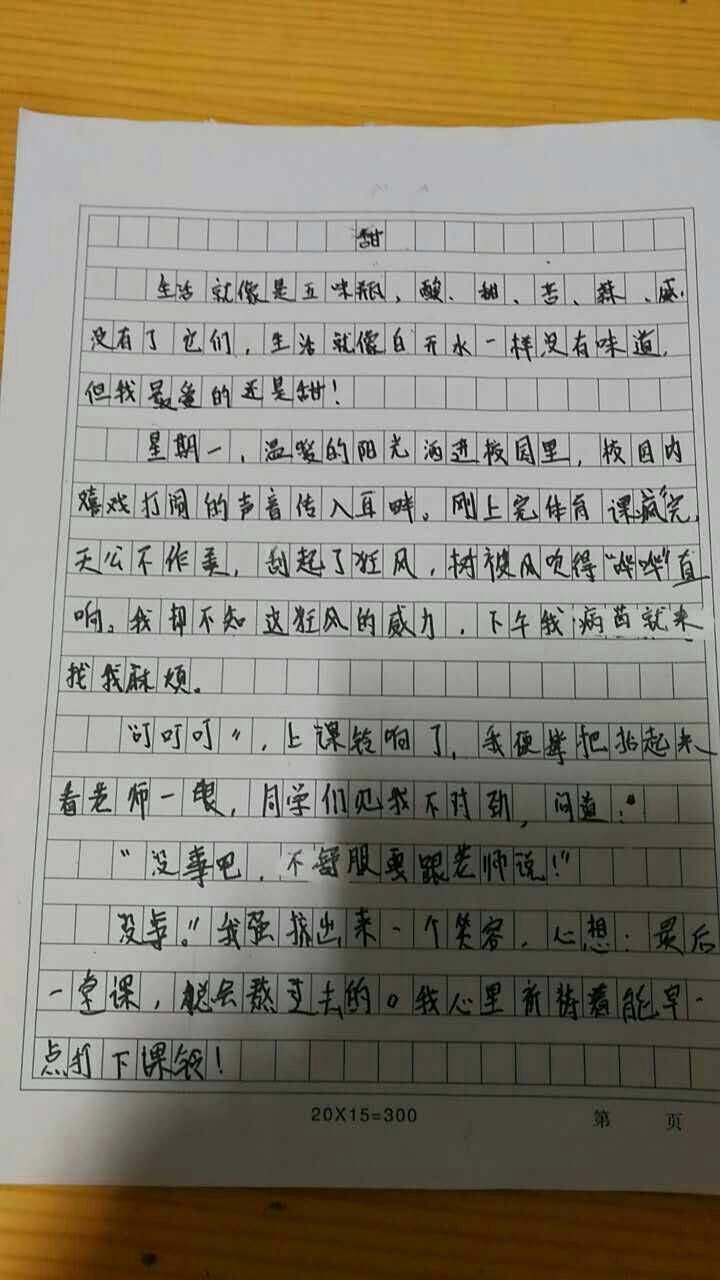 甜
生活就像是五味瓶、酸、甜、苦、辣、咸.
没有了它们，生活就像白开水一样没有味道，
但我最爱的还是甜！
星期一，温暖的阳光洒进校园里，校园内
嬉戏打闹的声音传入耳畔。刚上完体育课疯完，
天公不作美，刮起了狂风，树被风吹得“哗哗”直
响。我却不知这狂风的威力，下午我病菌就来
找我麻烦。
“叮叮叮”，上课铃响了，我便撑把抬起来
看老师一眼，同学们见我不对劲，问道：“
“没事吧，不舒服要跟老师说！”
没事。”我强挤出来一个笑容，心想：最后
一堂课，总会熬过去的。我心里祈祷着能早一
点打下课铃！
20X15=300
第 页